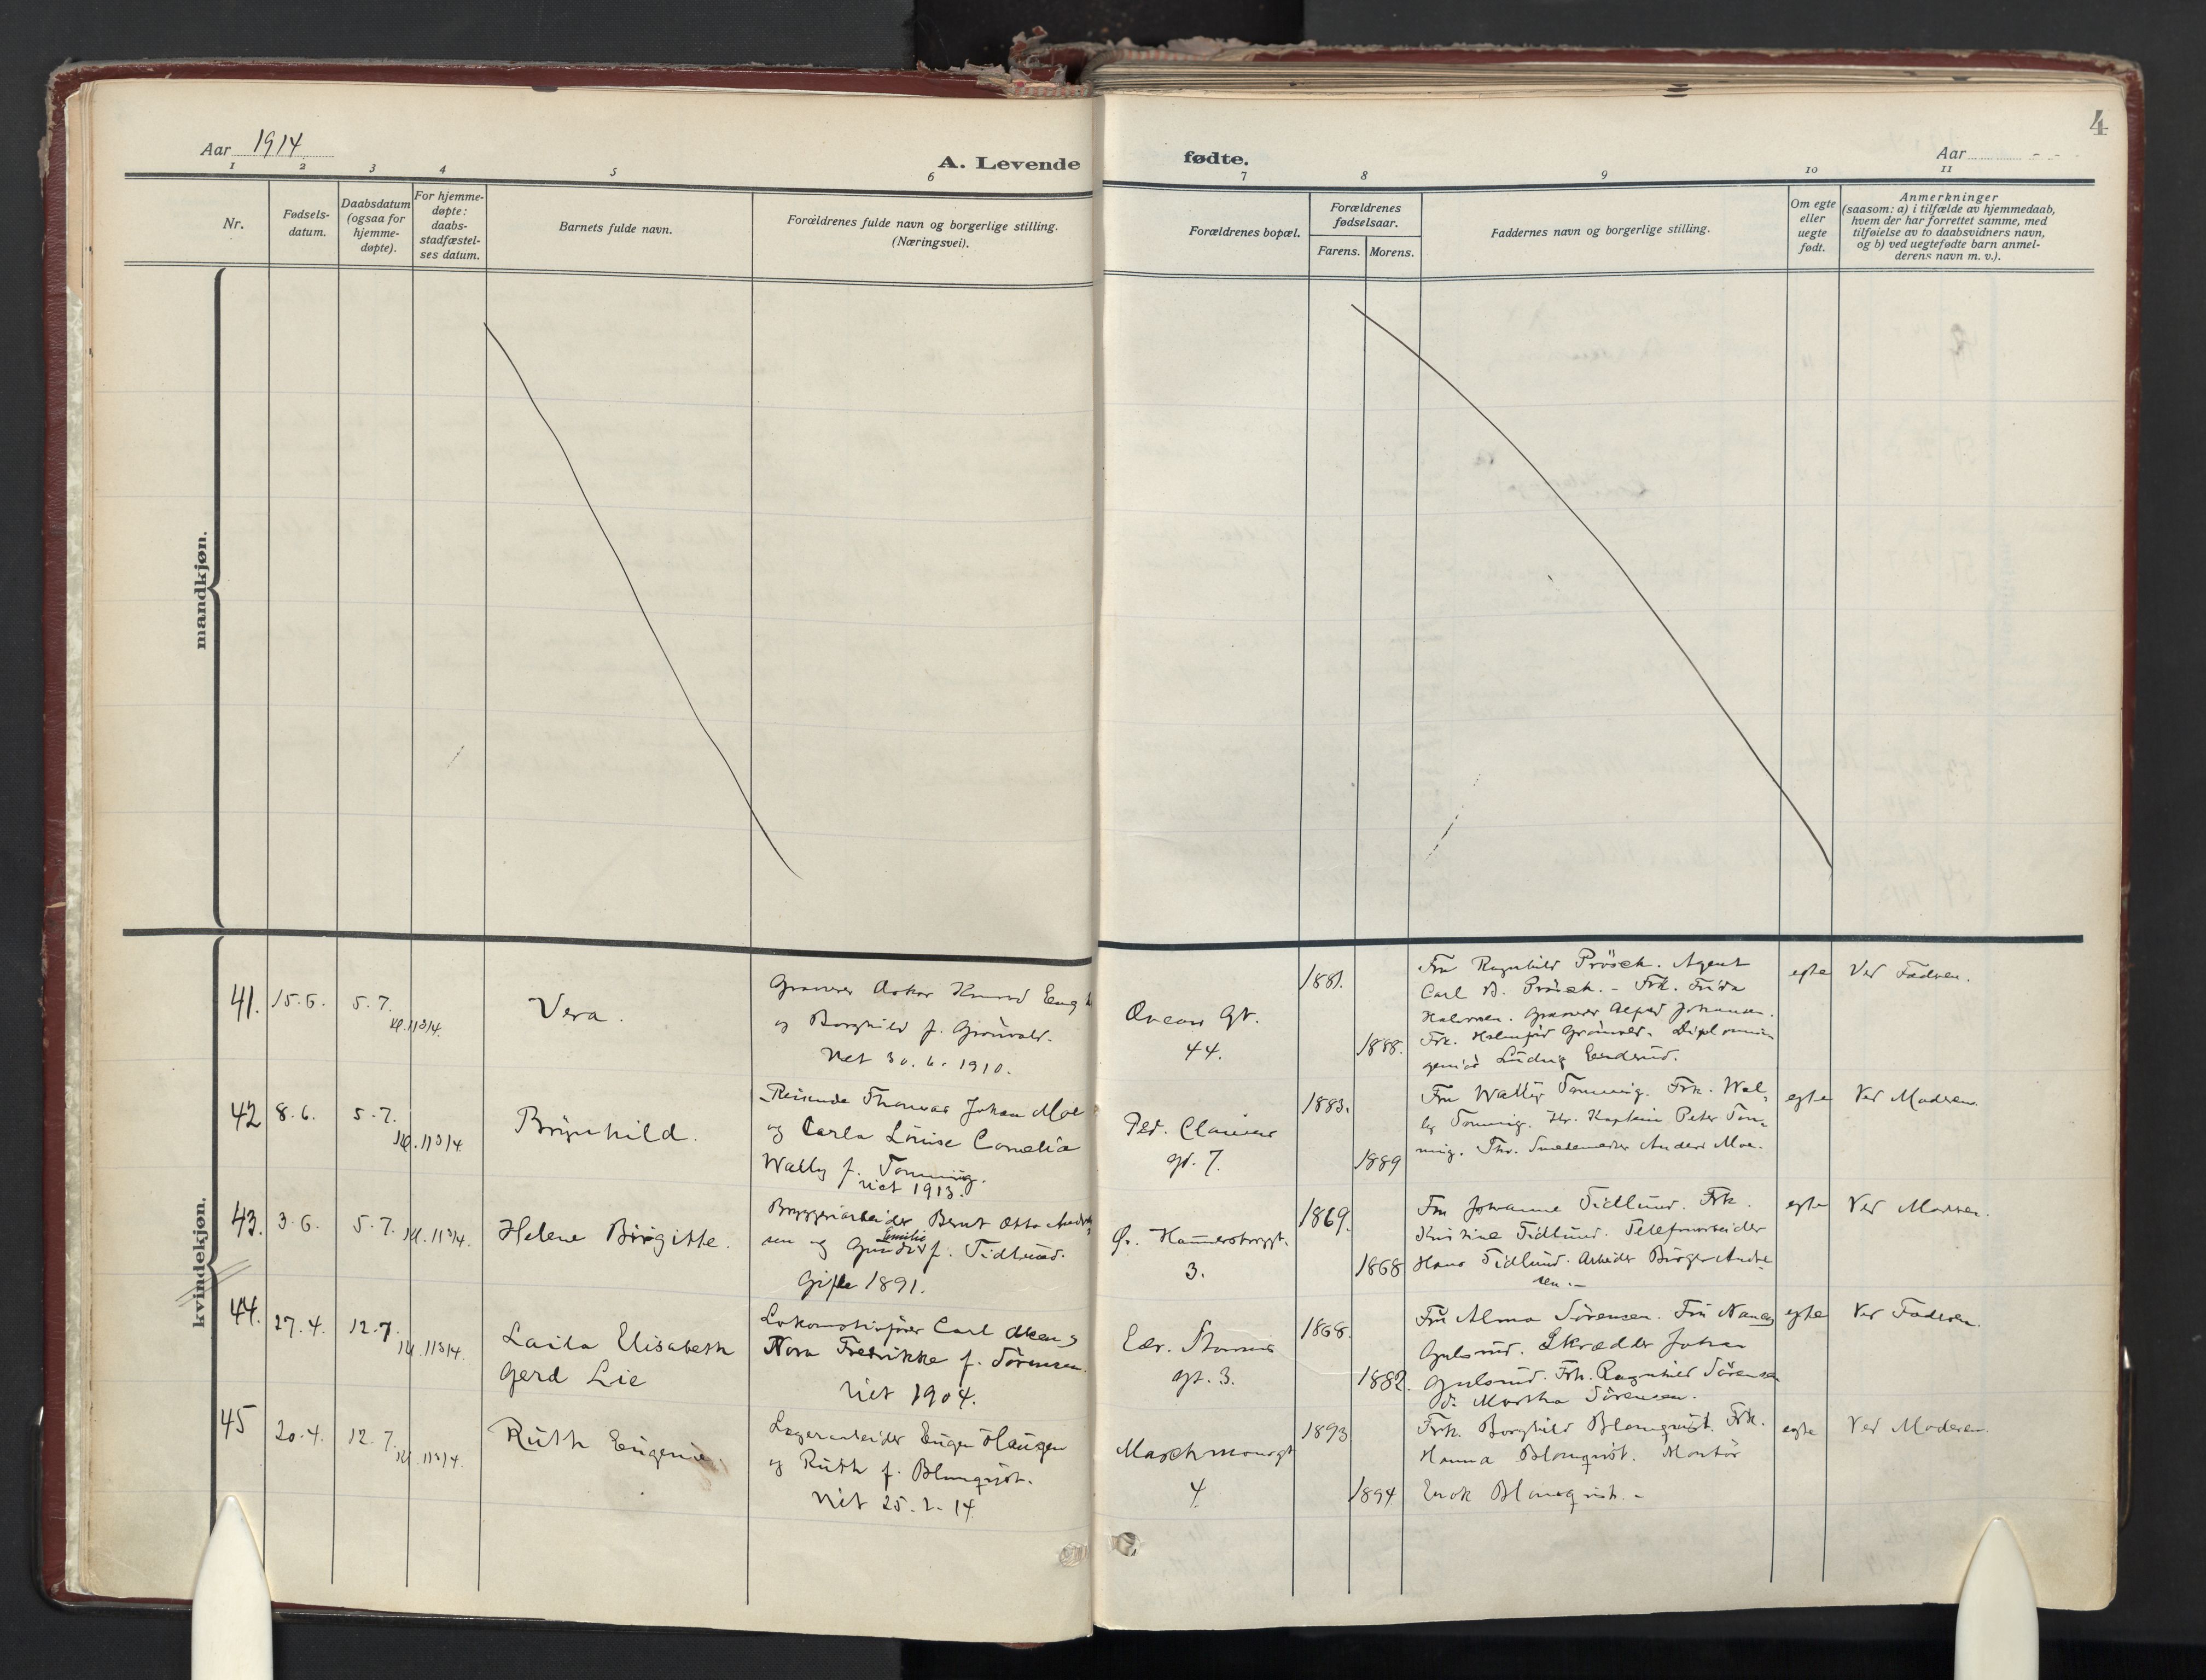 Aar 1914
A. Levende
fødte.
Aar
4
1 2 3 4 5 6
7 8 9 10 11
Nr.
Fødsels-
datum.
Daabsdatum
(ogsaa for
hjemme-
døpte).
For hjemme-
døpte:
daabs-
stadfæstel-
ses datum.
Barnets fulde navn.
Forældrenes fulde navn og borgerlige stilling.
(Næringsvei).
Forældrenes bopæl.
Forældrenes
fødselsaar.
Farens. Morens.
Faddernes navn og borgerlige stilling.
Om egte
eller
uegte
født.
Anmerkninger
(saasom: a) i tilfælde av hjemmedaab,
hvem der har forrettet samme, med
tilføielse av to daabsvidners navn,
og b) ved uegtefødte barn anmel-
derens navn m. v.).
mandkjøn.
kvindekjøn.
41. 15.6. 5.7.
Vera.
og Borghild f. Grönvold.
Viet 30.6.1910.
44.
1881.
1888.
Fru Ragnhild Prösch. Agent
Carl B. Prösch. - Frk. Frida
Halvorsen. Gravør Alfred Johansen.
egte
Ved Faderen.
42 8.6. 5.7.
Brynhild.
Reisende Thomas Johan Moe
og Carla Louise Cornelia
Wally f. Tomming.
Viet 1913.
gt. 7.
1883.
1889
Fru Wally Tomming. Frk. Wal-
ly Tomming. Hr. Kaptein Peter Tom-
ming. Hr. Smedemester Anders Moe.
egte
Ved Moderen.
43. 3.6. 5.7.
Helene Birgitte.
Bryggeriarbeider Bernt Otto Andre
Emilie
f. Tidlund.
Gifte 1891.
3.
1869.
1868
Fru Johanne Tidlund. Frk.
Kristine Tidlund. Telefonarbeider
Hans Tidlund. Arbeider Birger Andre-
sen.-
egte
Ved Moderen.
44. 27.4. 12.7.
Laila Elisabeth
Gerd Lie
Lokomotivfører Carl
Nora Fredrikke f. Sörensen.
Viet 1904.
Edv. Storms
gt. 3.
1868.
1882.
Fru Alma Sörensen. Fru Nancy
Gulsrud. Skrædder Johan
Gulsrud. Frk. Ragnhild Sörensen
Martha Sörensen.
egte
Ved Faderen.
45 20.4. 12.7.
Ruth Eugenie.
Lagerarbeider Eugen Haugen
og Ruth f. Blomqvist.
Viet 25.2.14
4
1893
1894
Frk. Borghild Blomqvist. Frk.
Hanna Blomqvist. Montör
Enok Blomqvist.-
egte
Ved Moderen.